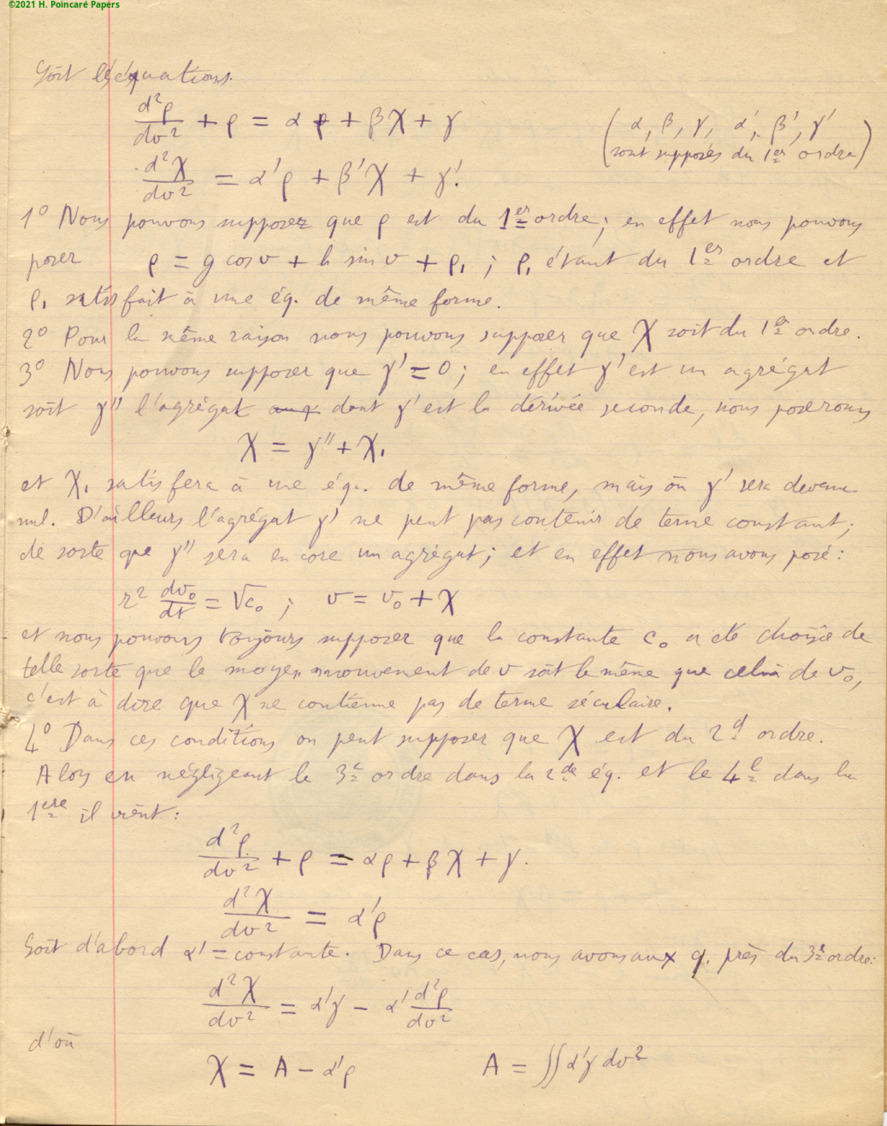 ©2021 H. Poincaré Papers
Soit les équations.
d²ρ/dv² + ρ = αρ + βχ + γ
d²χ/dv² = α'ρ + β'χ + γ'.
(α, β, γ, α', β', γ'
sont supposés du 1er ordre)
1° Nous pouvons supposer que ρ est du 1er ordre ; en effet nous pouvons
poser ρ = g cos v + h sin v + ρ₁ ; ρ₁ étant du 1er ordre et
ρ₁ satisfait à une éq. de même forme.
2° Pour la même raison nous pouvons supposer que χ soit du 1er ordre.
3° Nous pouvons supposer que γ' = 0 ; en effet γ' est un agrégat
soit γ'' l'agrégat dont γ' est la dérivée seconde, nous poserons
χ = γ'' + χ₁
et χ₁ satisfera à une éq. de même forme, mais où γ' sera devenu
nul. D'ailleurs l'agrégat γ' ne peut pas contenir de terme constant ;
de sorte que γ'' sera encore un agrégat ; et en effet nous avons posé :
r² dv₀/dt = √c₀ ; v = v₀ + χ
et nous pouvons toujours supposer que la constante c₀ a été choisie de
telle sorte que le moyen mouvement de v soit le même que celui de v₀,
c'est à dire que χ ne contienne pas de terme séculaire.
4° Dans ces conditions on peut supposer que χ est du 2d ordre.
Alors en négligeant le 3e ordre dans la 2de éq. et le 4e dans la
1ere il vient :
d²ρ/dv² + ρ = αρ + βχ + γ.
d²χ/dv² = α'ρ
Soit d'abord α' = constante. Dans ce cas, nous avons aux q. près du 3e ordre :
d²χ/dv² = α'γ - α' d²ρ/dv²
d'où
χ = A - α'ρ A = ∬ α'γ dv²